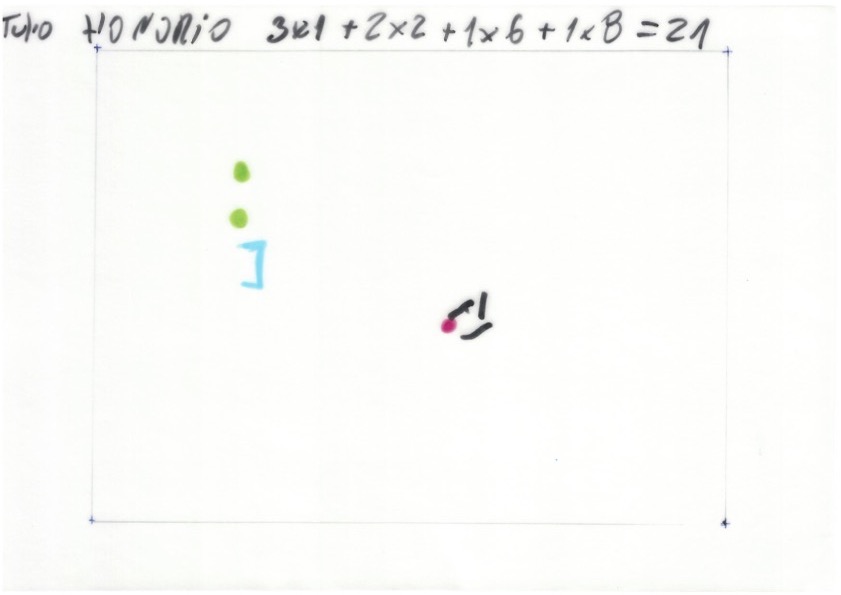 Tulio HONORIO 3x1 + 2x2 + 1x6 + 1x8 = 21